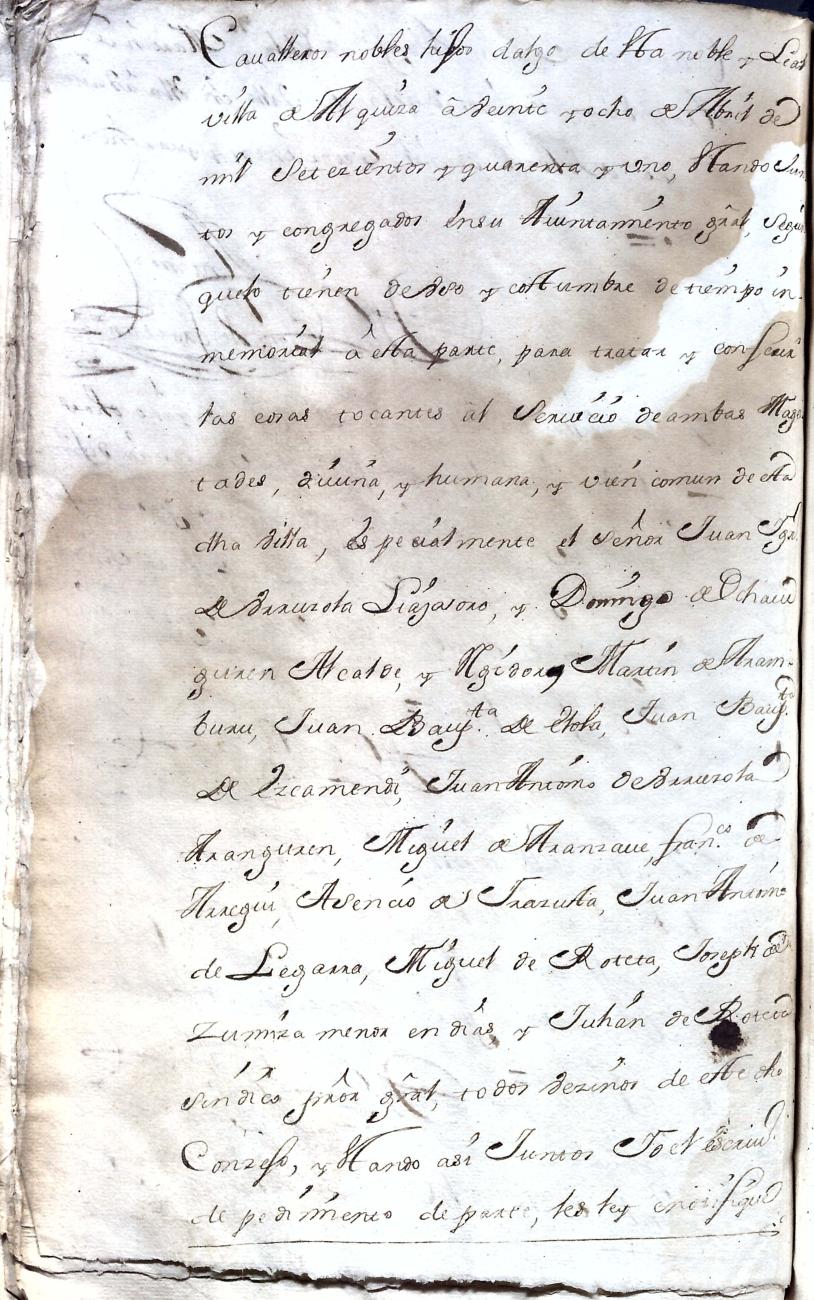 Cavalleros nobles hijos dalgo de esta noble y Leal
villa de Alquiza â Veinte y ocho de Abril de
mil Setezientos y quarenta y vno, estando Jun
tos y congregados en su Aiuntamiento grâl, Segun
quelo tienen de Vso y costumbre de tiempo in-
memorial â esta parte, para tratar y conferir
las cosas tocantes al Seruicio de ambas Mages
tades, diuina, y humana, y vien comun de esta
dha Villa, especialmente el señor Juan Ign.
de Yrrurzola Liçajasoro, y Domingo de Echaue
guren Alcalde, y Regidor, Martin de Aram-
buru, Juan Baup.ta de Etola, Juan Baup.ta
de Yzcamendi, Juan Antonio de Yrrurzola
Aranguren, Miguel de Aranzaue, fran.co de
Arregui, Asencio de Irazusta, Juan Antonio
de Legarra, Miguel de Roteta, Joseph de
Zunniza menor en dias, y Julian de Roteta
sindico prôr grâl, todos Vezinos de este dho
Conzejo, y estando asi Juntos Yo el escriu.
de pedimiento de parte, les ley